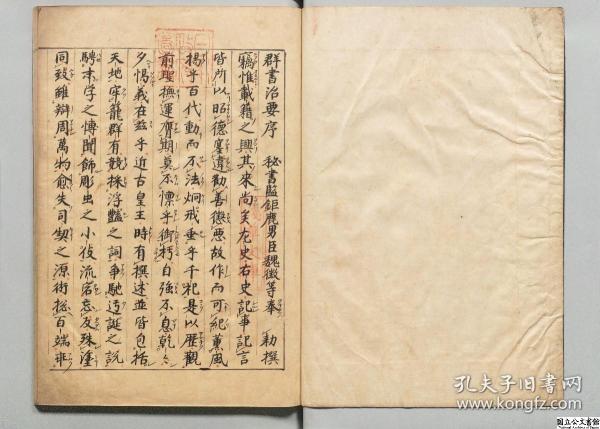 群書治要序 秘書監鉅鹿男臣魏徵等奉 勅撰
竊惟載籍之興其來尚矣左史右史記事記言
皆所以昭德塞違勸善懲惡故作而可紀薰風
揚乎百代動而不法炯戒垂乎千祀是以歷觀
前聖撫運膺期莫不懍乎御朽自強不息乾々
夕惕義在茲乎近古皇王時有撰述並皆包括
天地牢籠群有競採浮艷之詞爭馳迂誕之說
騁末學之博聞飾彫虫之小伎流宕忘反殊塗
同致雖辯周萬物愈失司契之源術揔百端乖
孔夫子旧書网
www.kongfz.com
国立公文書館
National Archives of Japan